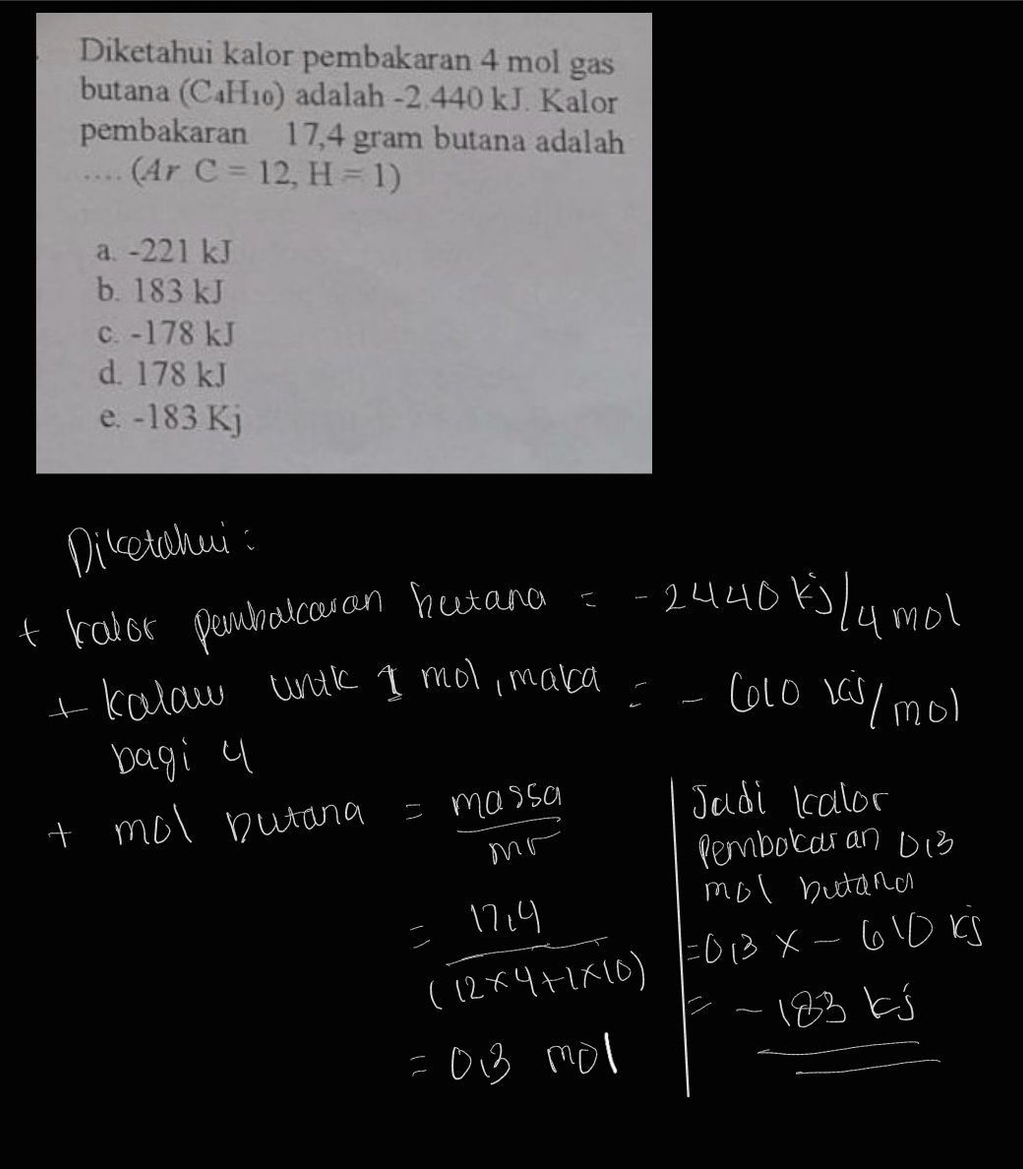 Diketahui kalor pembakaran 4 mol gas
butana (C₄H₁₀) adalah -2.440 kJ. Kalor
pembakaran 17,4 gram butana adalah
.... (Ar C = 12, H = 1)
a. -221 kJ
b. 183 kJ
c. -178 kJ
d. 178 kJ
e. -183 Kj
Diketahui :
+ kalor pembakaran butana = - 2440 kj/4 mol
+ kalau untk 1 mol, maka = - 610 kj/mol
bagi 4
+ mol butana = massa
mr
= 17,4
(12x4+1x10)
= 0,3 mol
Jadi kalor
Pembakaran 0,3
mol butana
= 0,3 x - 610 kj
= - 183 kj